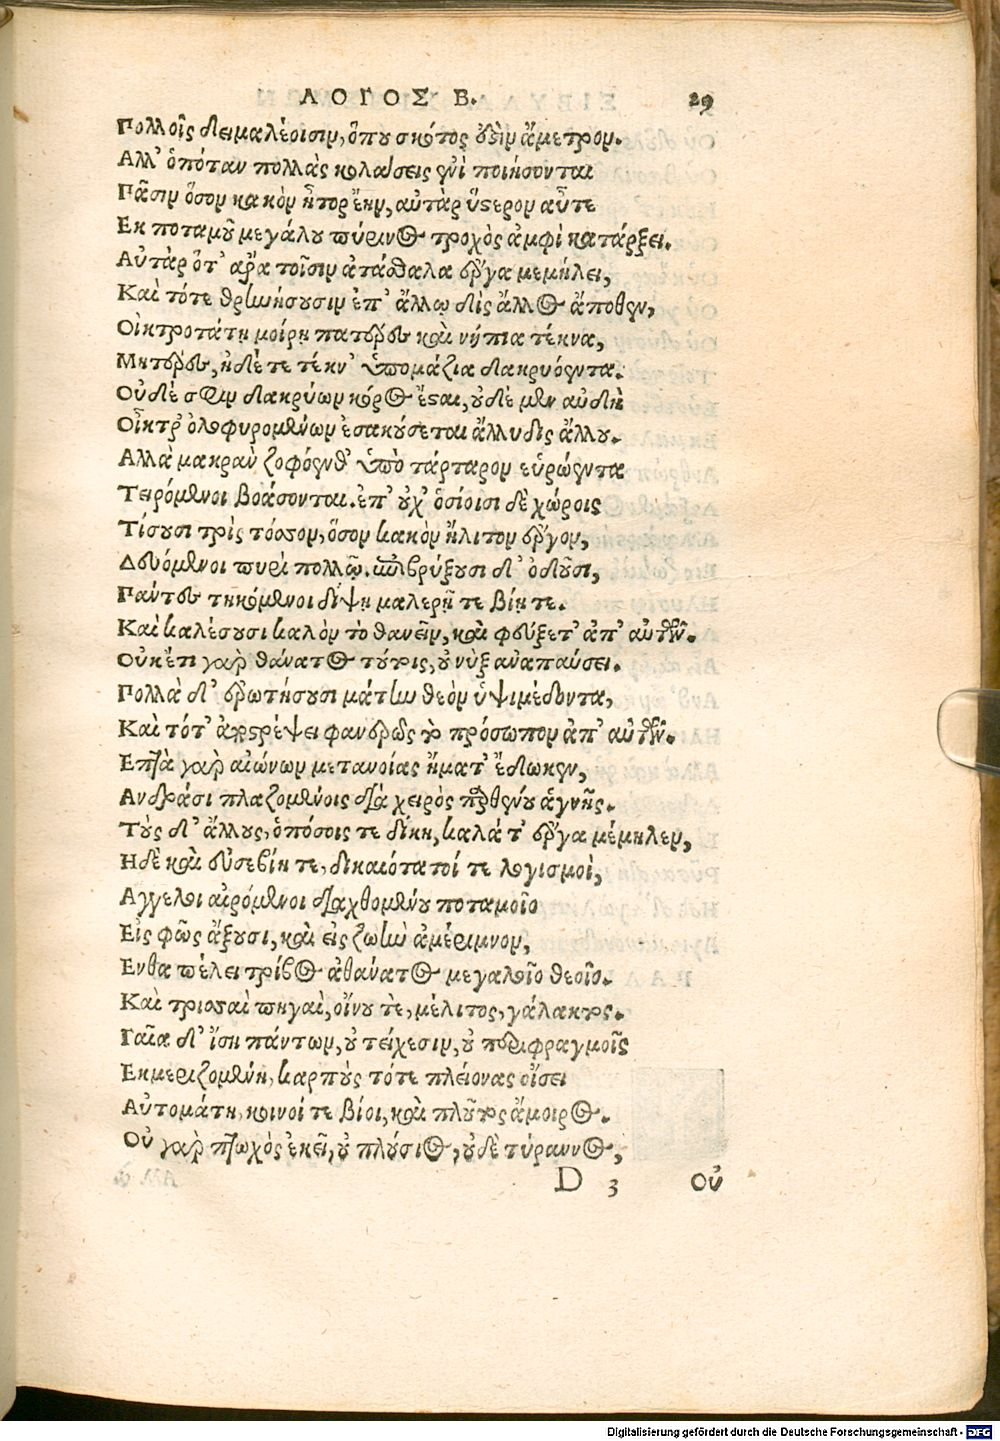 ΛΟΓΟΣ Β. 29
Πολλοῖς δειμαλέοισιν, ὅπου σκότος ἐςὶν ἄμετρον.
Αλλ' ὁπόταν πολλὰς κολάσεις ἐνὶ ποιήσονται
Πᾶσιν ὅσον κακὸν ἦτορ ἔην, αὐτὰρ ὕςερον αὖτε
Εκ ποταμοῦ μεγάλου πύρινος τροχὸς ἀμφὶ κατάρξει.
Αὐτὰρ ὅτ' ἄρα τοῖσιν ἀτάσθαλα ἔργα μεμήλει,
Καὶ τότε θρηνήσουσιν ἐπ' ἄλλῳ δὶς ἄλλος ἄποθεν,
Οἰκτροτάτῃ μοίρῃ πατέρες καὶ νήπια τέκνα,
Μητέρες, ἠδέ τε τέκν' ὑπομάζια δακρυόεντα.
Οὐδέ σφιν δακρύων κόρος ἔςαι, οὐδὲ μὲν αὐδὴ
Οἶκτρ' ὀλοφυρομένων ἐσακούσεται ἄλλυδις ἄλλου.
Αλλὰ μακρὰν ζοφόενθ' ὑπὸ τάρταρον εὐρώεντα
Τειρόμενοι βοάσονται. ἐπ' οὐχ' ὁσίοισι δὲ χώροις
Τίσουσι τρὶς τόσσον, ὅσον κακὸν ἤλιτον ἔργον,
Δευόμενοι πυρὶ πολλῷ. ἐπιβρύξουσι δ' ὀδοῦσι,
Πάντες τηκόμενοι δίψῃ μαλερῇ τε βίῃ τε.
Καὶ καλέσουσι καλὸν τὸ θανεῖν, καὶ φεύξετ' ἀπ' αὐτῶν.
Οὐκέτι γὰρ θάνατος τούτοις, οὐ νὺξ ἀναπαύσει.
Πολλὰ δ' ἐρωτήσουσι μάτην θεὸν ὑψιμέδοντα,
Καὶ τότ' ἀποςρέψει φανερῶς τὸ πρόσωπον ἀπ' αὐτῶν.
Επτὰ γὰρ αἰώνων μετανοίας ἤματ' ἔδωκεν,
Ανδράσι πλαζομένοις διὰ χειρὸς παρθένου ἁγνῆς.
Τοὺς δ' ἄλλους, ὁπόσοις τε δίκη, καλά τ' ἔργα μέμηλεν,
Ηδὲ καὶ εὐσεβίη τε, δικαιότατοί τε λογισμοὶ,
Αγγελοι αἰρόμενοι διαχθομένου ποταμοῖο
Εἰς φῶς ἄξουσι, καὶ εἰς ζωὴν ἀμέριμνον,
Ενθα πέλει τρίβος ἀθανάτος μεγαλοῖο θεοῖο.
Καὶ τρισσαὶ πηγαὶ, οἴνου τὲ, μέλιτος, γάλακτος.
Γαῖα δ' ἴση πάντων, οὐ τείχεσιν, οὐ περιφραγμοῖς
Εκμεριζομένη, καρποὺς τότε πλείονας οἴσει
Αὐτομάτη, κοινοί τε βίοι, καὶ πλοῦτος ἄμοιρος.
Οὐ γὰρ πτωχὸς ἐκεῖ, οὐ πλούσιος, οὐδὲ τύραννος,
D 3 Οὐ
Digitalisierung gefördert durch die Deutsche Forschungsgemeinschaft - DFG